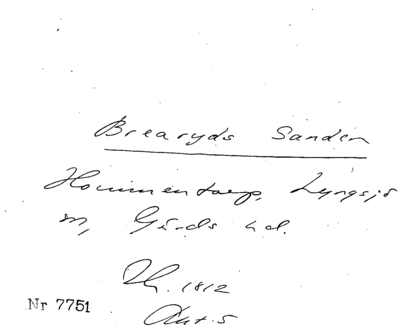 Brearyds Sanden
Hommentorp, Lyngsjö
sn, Gärds hd.
Th. 1812
Akt. 5
Nr 7751